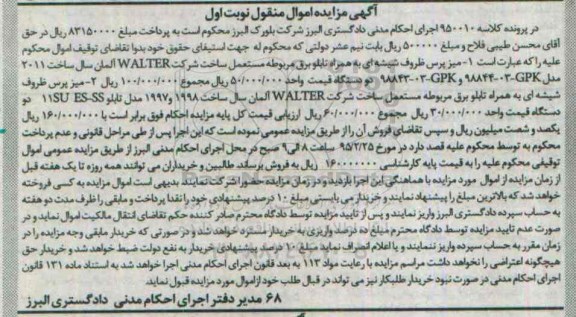 آگهی مزایده اموال منقول نوبت اول
در پرونده کلاسه ۹۵۰۰۱۰ اجرای احکام مدنی دادگستری البرز شرکت بلورک البرز محکوم است به پرداخت مبلغ ۸۳۱۵۰۰۰۰ ریال در حق
آقای محسن طیبی فلاح و مبلغ ۵۰۰۰۰۰ ریال بابت نیم عشر دولتی که محکوم له جهت استیفای حقوق خود بدوا تقاضای توقیف اموال محکوم
علیه را که عبارت است ۱-میز پرس ظروف شیشه ای به همراه تابلو برق مربوطه مستعمل ساخت شرکت WALTER آلمان سال ساخت ۲۰۱۱
مدل GPK-۰۳-۹۸۸۴۴ و GPK-۰۳-۹۸۸۴۳ دو دستگاه قیمت واحد ۵۰/۰۰۰/۰۰۰ ریال مجموع ۱۰۰/۰۰۰/۰۰۰ ریال ۲-میز پرس ظروف
شیشه ای به همراه تابلو برق مربوطه مستعمل ساخت شرکت WALTER آلمان سال ساخت ۱۹۹۸ و ۱۹۹۷ مدل تابلو 11SU ES-SS دو
دستگاه قیمت واحد ۳۰/۰۰۰/۰۰۰ ریال مجموع ۶۰/۰۰۰/۰۰۰ ریال ارزیابی قیمت کل پایه مزایده احکام فوق برابر است با ۱۶۰/۰۰۰/۰۰۰ ریال
یکصد و شصت میلیون ریال و سپس تقاضای فروش آن را از طریق مزایده عمومی نموده است که این اجرا پس از طی مراحل قانونی و عدم پرداخت
محکوم به توسط محکوم علیه قصد دارد در مورخ ۹۵/۲/۲۵ ساعت ۸ الی ۹ صبح در محل اجرای احکام مدنی البرز از طریق مزایده عمومی اموال
توقیفی محکوم علیه را به قیمت پایه کارشناسی ۱۶۰۰۰۰۰۰۰ ریال به فروش برساند. طالبین و خریداران می توانند همه روزه تا یک هفته قبل
از زمان مزایده از اموال مورد مزایده با هماهنگی این اجرا بازدید و در زمان مزایده حضور شرکت نمایند بدیهی است اموال مزایده به کسی فروخته
خواهد شد که بالاترین مبلغ را پیشنهاد نمایند و خریدار می بایستی مبلغ ۱۰ درصد پیشنهادی خود را نقدا پرداخت و مابقی را ظرف مدت دو هفته
به حساب سپرده دادگستری البرز واریز نمایند و پس از تایید مزایده توسط دادگاه محترم صادر کننده حکم تقاضای انتقال مالکیت اموال نماید و در
صورت عدم تایید مزایده توسط دادگاه محترم مبلغ ده درصد واریزی به خریدار مسترد خواهد شد و در صورتی که خریدار مابقی وجه مزایده را در
زمان مقرر به حساب سپرده واریز ننمایند و یا اعلام انصراف نماید مبلغ ۱۰ درصد پیشنهادی خریدار به نفع دولت ضبط خواهد شد و خریدار حق
هیچگونه اعتراضی را نخواهد داشت مراسم مزایده با رعایت مواد ۱۱۳ به بعد قانون اجرای احکام مدنی اجرا خواهد شد به استناد ماده ۱۳۱ قانون
اجرای احکام مدنی در صورت نبود خریدار طلبکار نیز می تواند در قبال طلب خود از اموال مورد مزایده قبول نماید.
۶۸ مدیر دفتر اجرای احکام مدنی دادگستری البرز